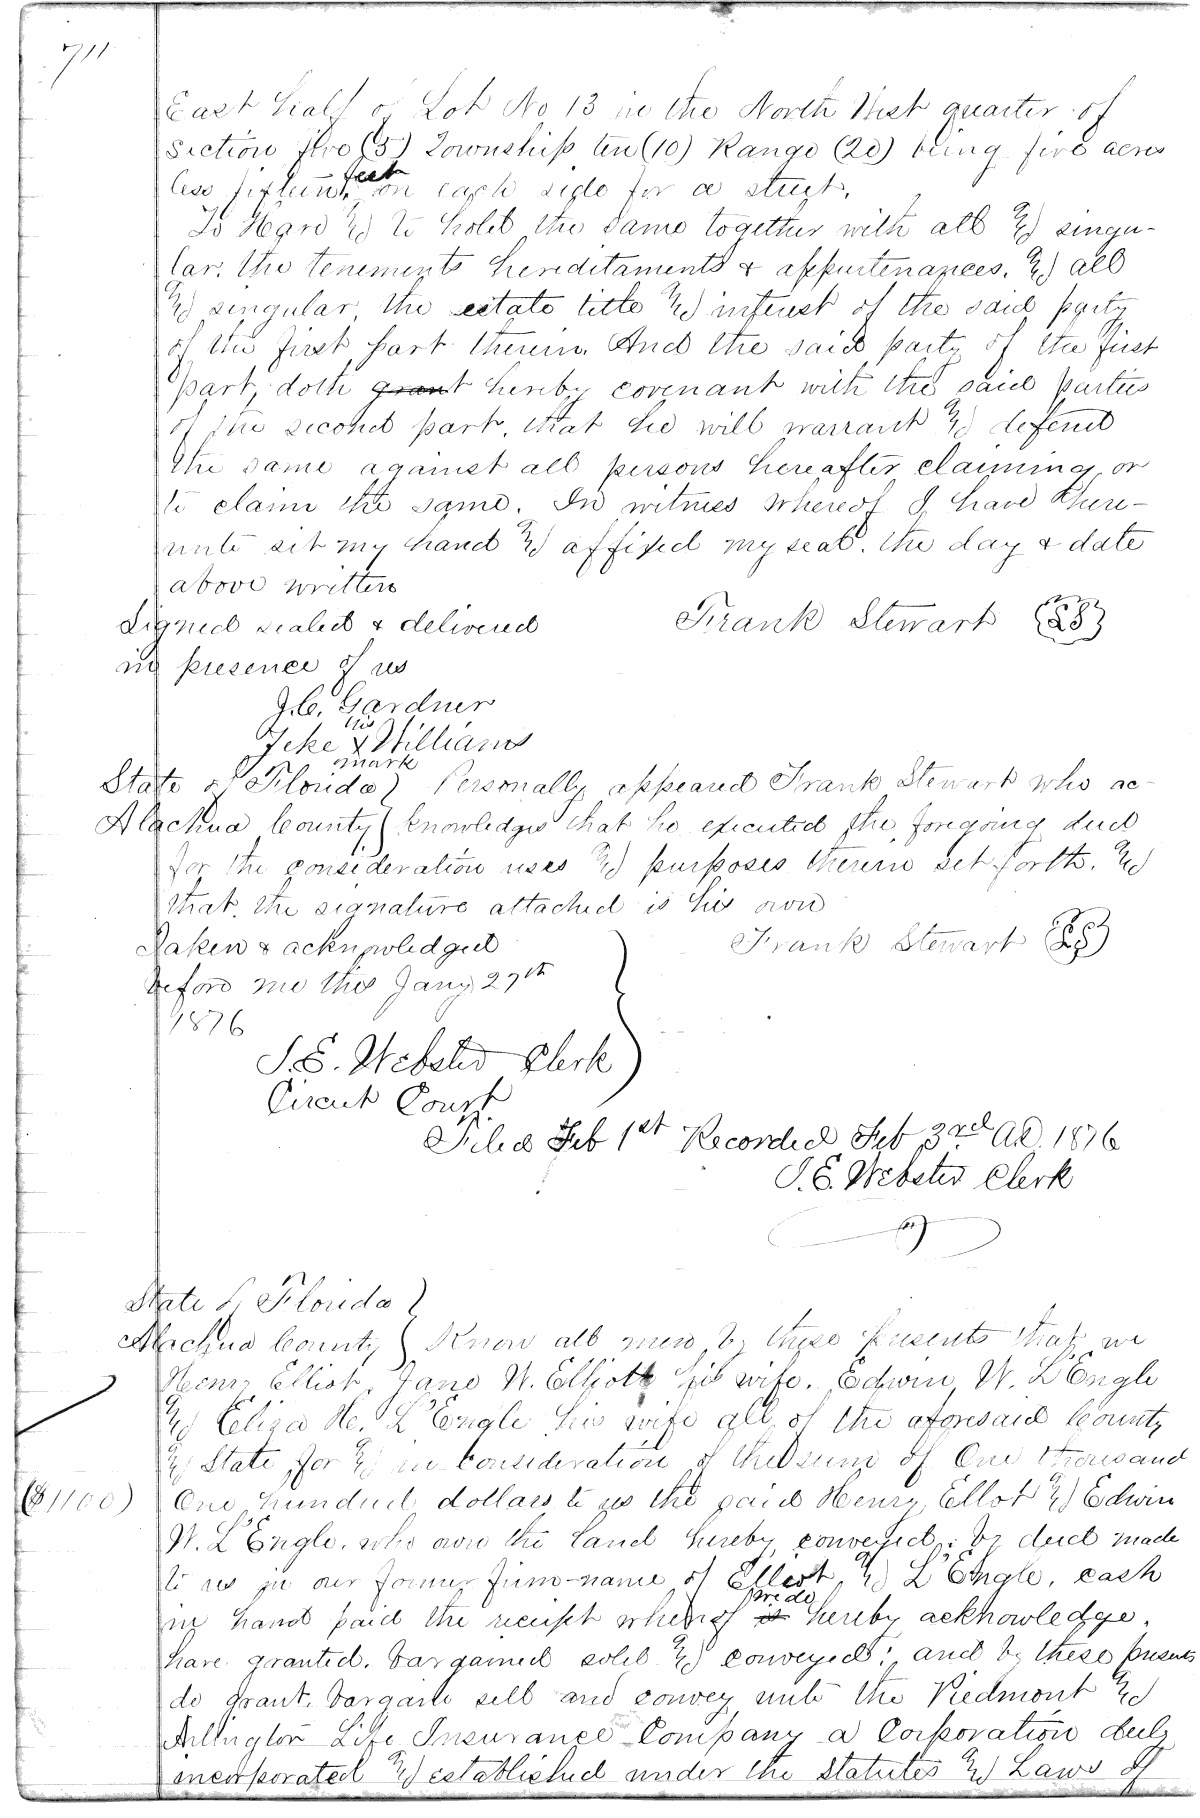 711
East half of Lot No 13 in the North West quarter of
Section five (5) Township ten (10) Range (20) being five acres
less fifteen feet on each side for a street.
To Have & to hold the same together with all & singu-
lar. the tenements hereditaments & appurtenances. & all
& singular, the estate title & interest of the said party
of the first part therein. And the said party of the first
part, doth grant hereby covenant with the said parties
of the second part. that he will warrant & defend
the same against all persons hereafter claiming or
to claim the same. In witness whereof I have there-
unto set my hand & affixed my seal. the day & date
above written
Signed sealed & delivered Frank Stewart {LS}
in presence of us
J.C. Gardner
his
Jeke X Williams
mark
State of Florida } Personally appeared Frank Stewart who ac-
Alachua County } knowledges that he executed the foregoing deed
for the consideration uses & purposes therein set forth. &
that. the signature attached is his own
Taken & acknowledged Frank Stewart {LS}
before me this Jany 27th
1876
J.E. Webster Clerk
Circuit Court
Filed Feb 1st Recorded Feb 3rd A.D. 1876
J.E. Webster Clerk
State of Florida }
Alachua County { Know all men by these presents that we
Henry Elliot, Jane W. Elliott his wife. Edwin W. L'Engle
& Eliza H. L'Engle his wife all of the aforesaid County
& State, for & in consideration of the sum of One thousand
($1100) One hundred dollars to us the said Henry Ellot & Edwin
W. L'Engle. who own the land hereby conveyed. by deed made
to us in our former firm-name of Elliot & L'Engle, cash
in hand paid the receipt whereof is we do hereby acknowledge.
have granted. bargained sold & conveyed; and by these presents
do grant. bargain sell and convey unto the Piedmont &
Arlington Life Insurance Company a Corporation duly
incorporated & established under the Statutes & Laws of